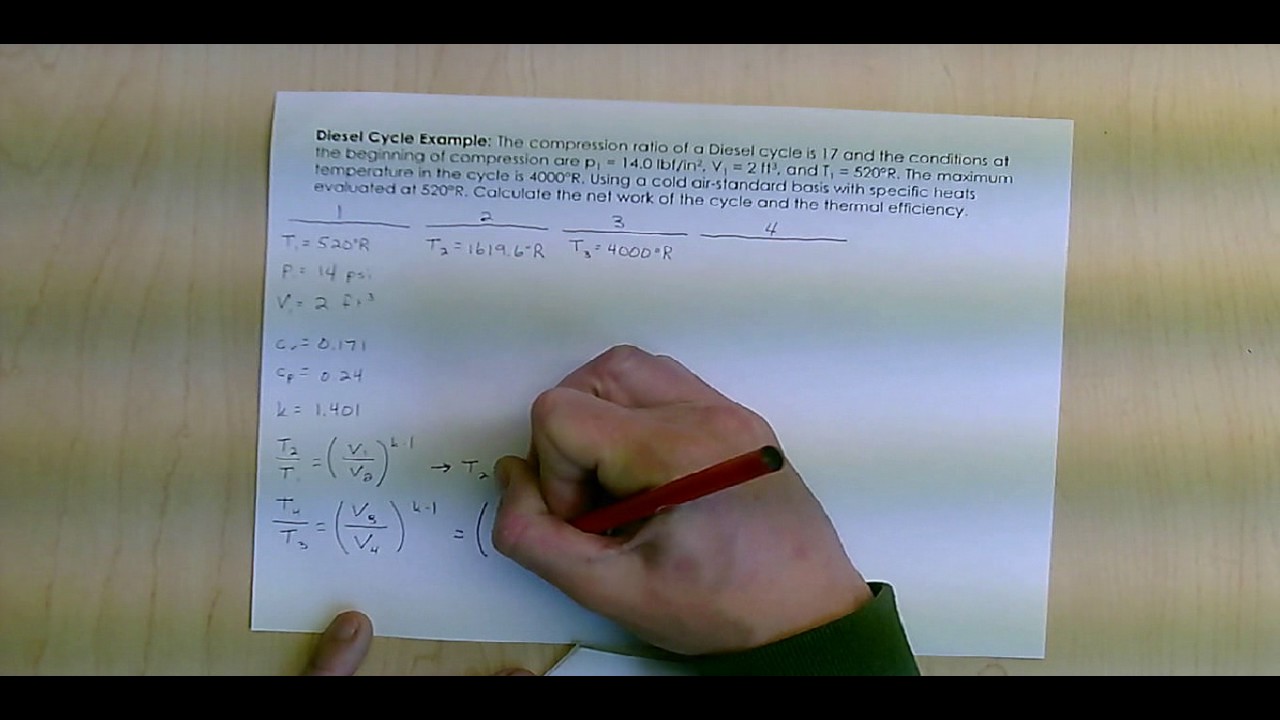 Diesel Cycle Example: The compression ratio of a Diesel cycle is 17 and the conditions at
the beginning of compression are p₁ = 14.0 lbf/in², V₁ = 2 ft³, and T₁ = 520°R. The maximum
temperature in the cycle is 4000°R. Using a cold air-standard basis with specific heats
evaluated at 520°R. Calculate the net work of the cycle and the thermal efficiency.
1 2 3 4
T₁ = 520°R T₂ = 1619.6°R T₃ = 4000°R
P₁ = 14 psi
V₁ = 2 ft³
cᵥ = 0.171
cₚ = 0.24
k = 1.401
T₂/T₁ = (V₁/V₂)^k-1 → T₂
T₄/T₃ = (V₃/V₄)^k-1 = (